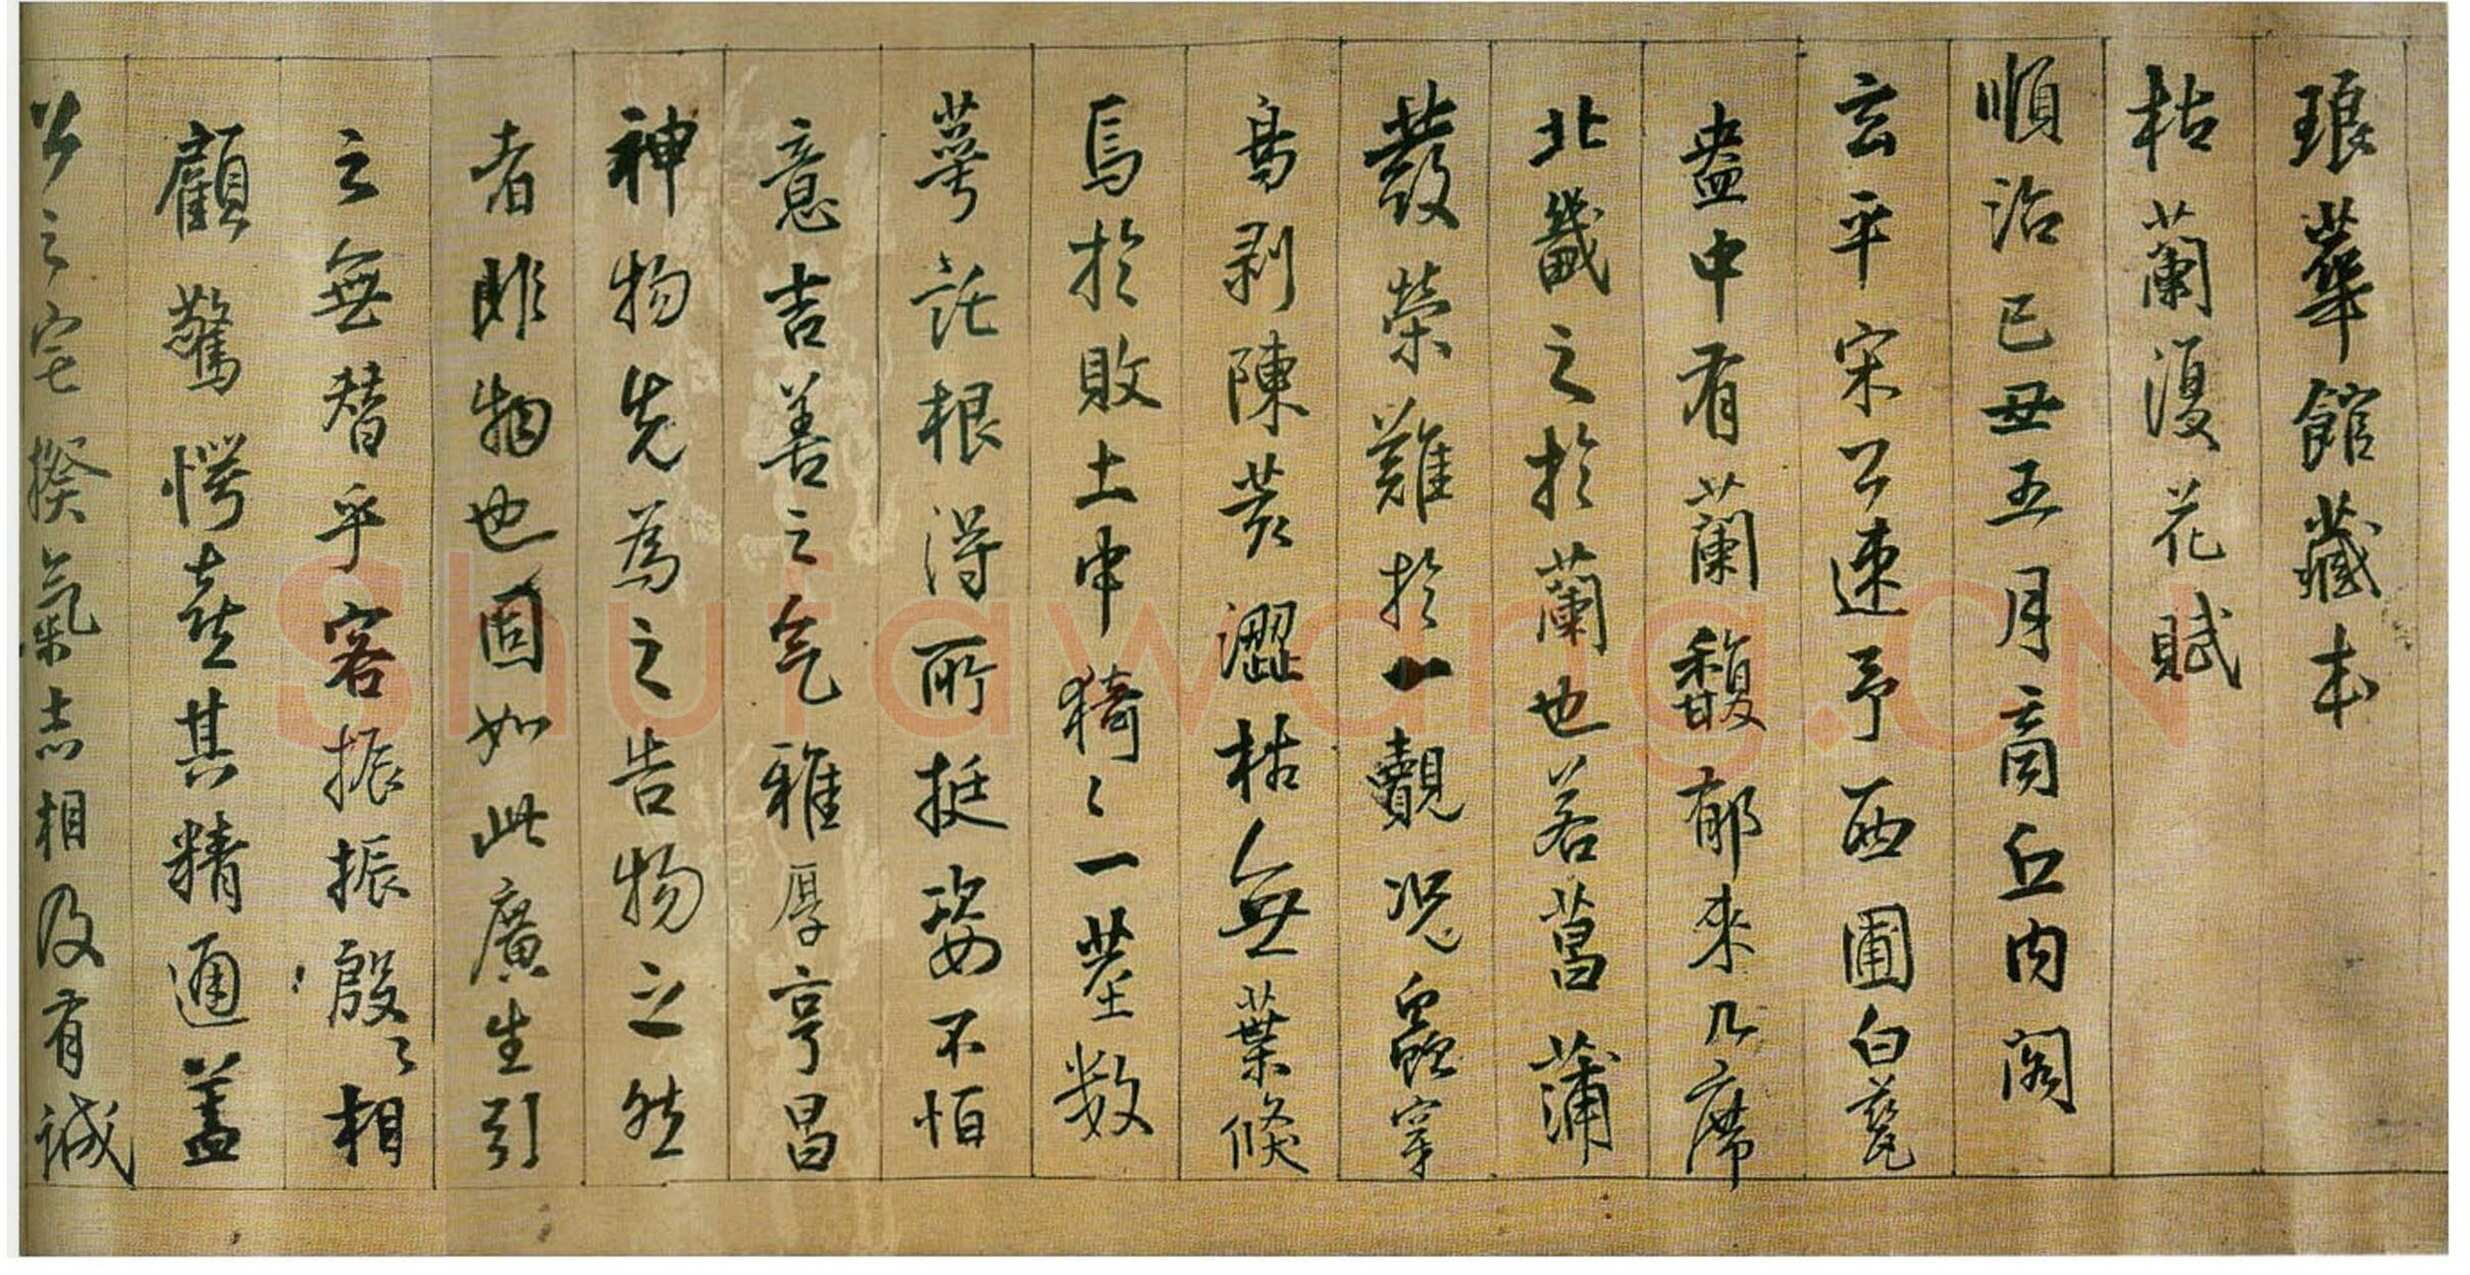 琅華館藏本
枯蘭復花賦
順治己丑五月商丘內閣
玄平宋公速予西圃白甆
盎中有蘭馥郁來几席
北畿之於蘭也若菖蒲
發榮難於一覩況蟲穿
鳥剥陳荄澀枯無葉倏
焉於敗土中猗〻一莖數
萼託根得所挺姿不怕
意吉善之气雅厚亨昌
神物先為之告物之然
者非物也固如此廣生引
之無替乎客振振殷〻相
顧驚愕喜其精通蓋
公之宅揆氣志相及有誠
Shufawang.CN